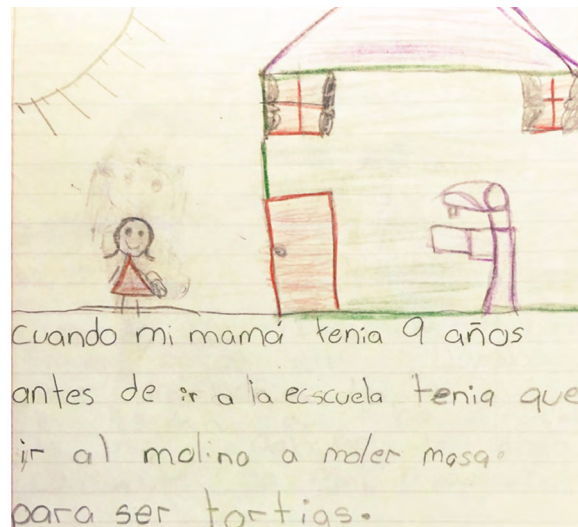 cuando mi mamá tenia 9 años
antes de ir a la ecscuela tenia que
ir al molino a moler masa.
para ser tortias.